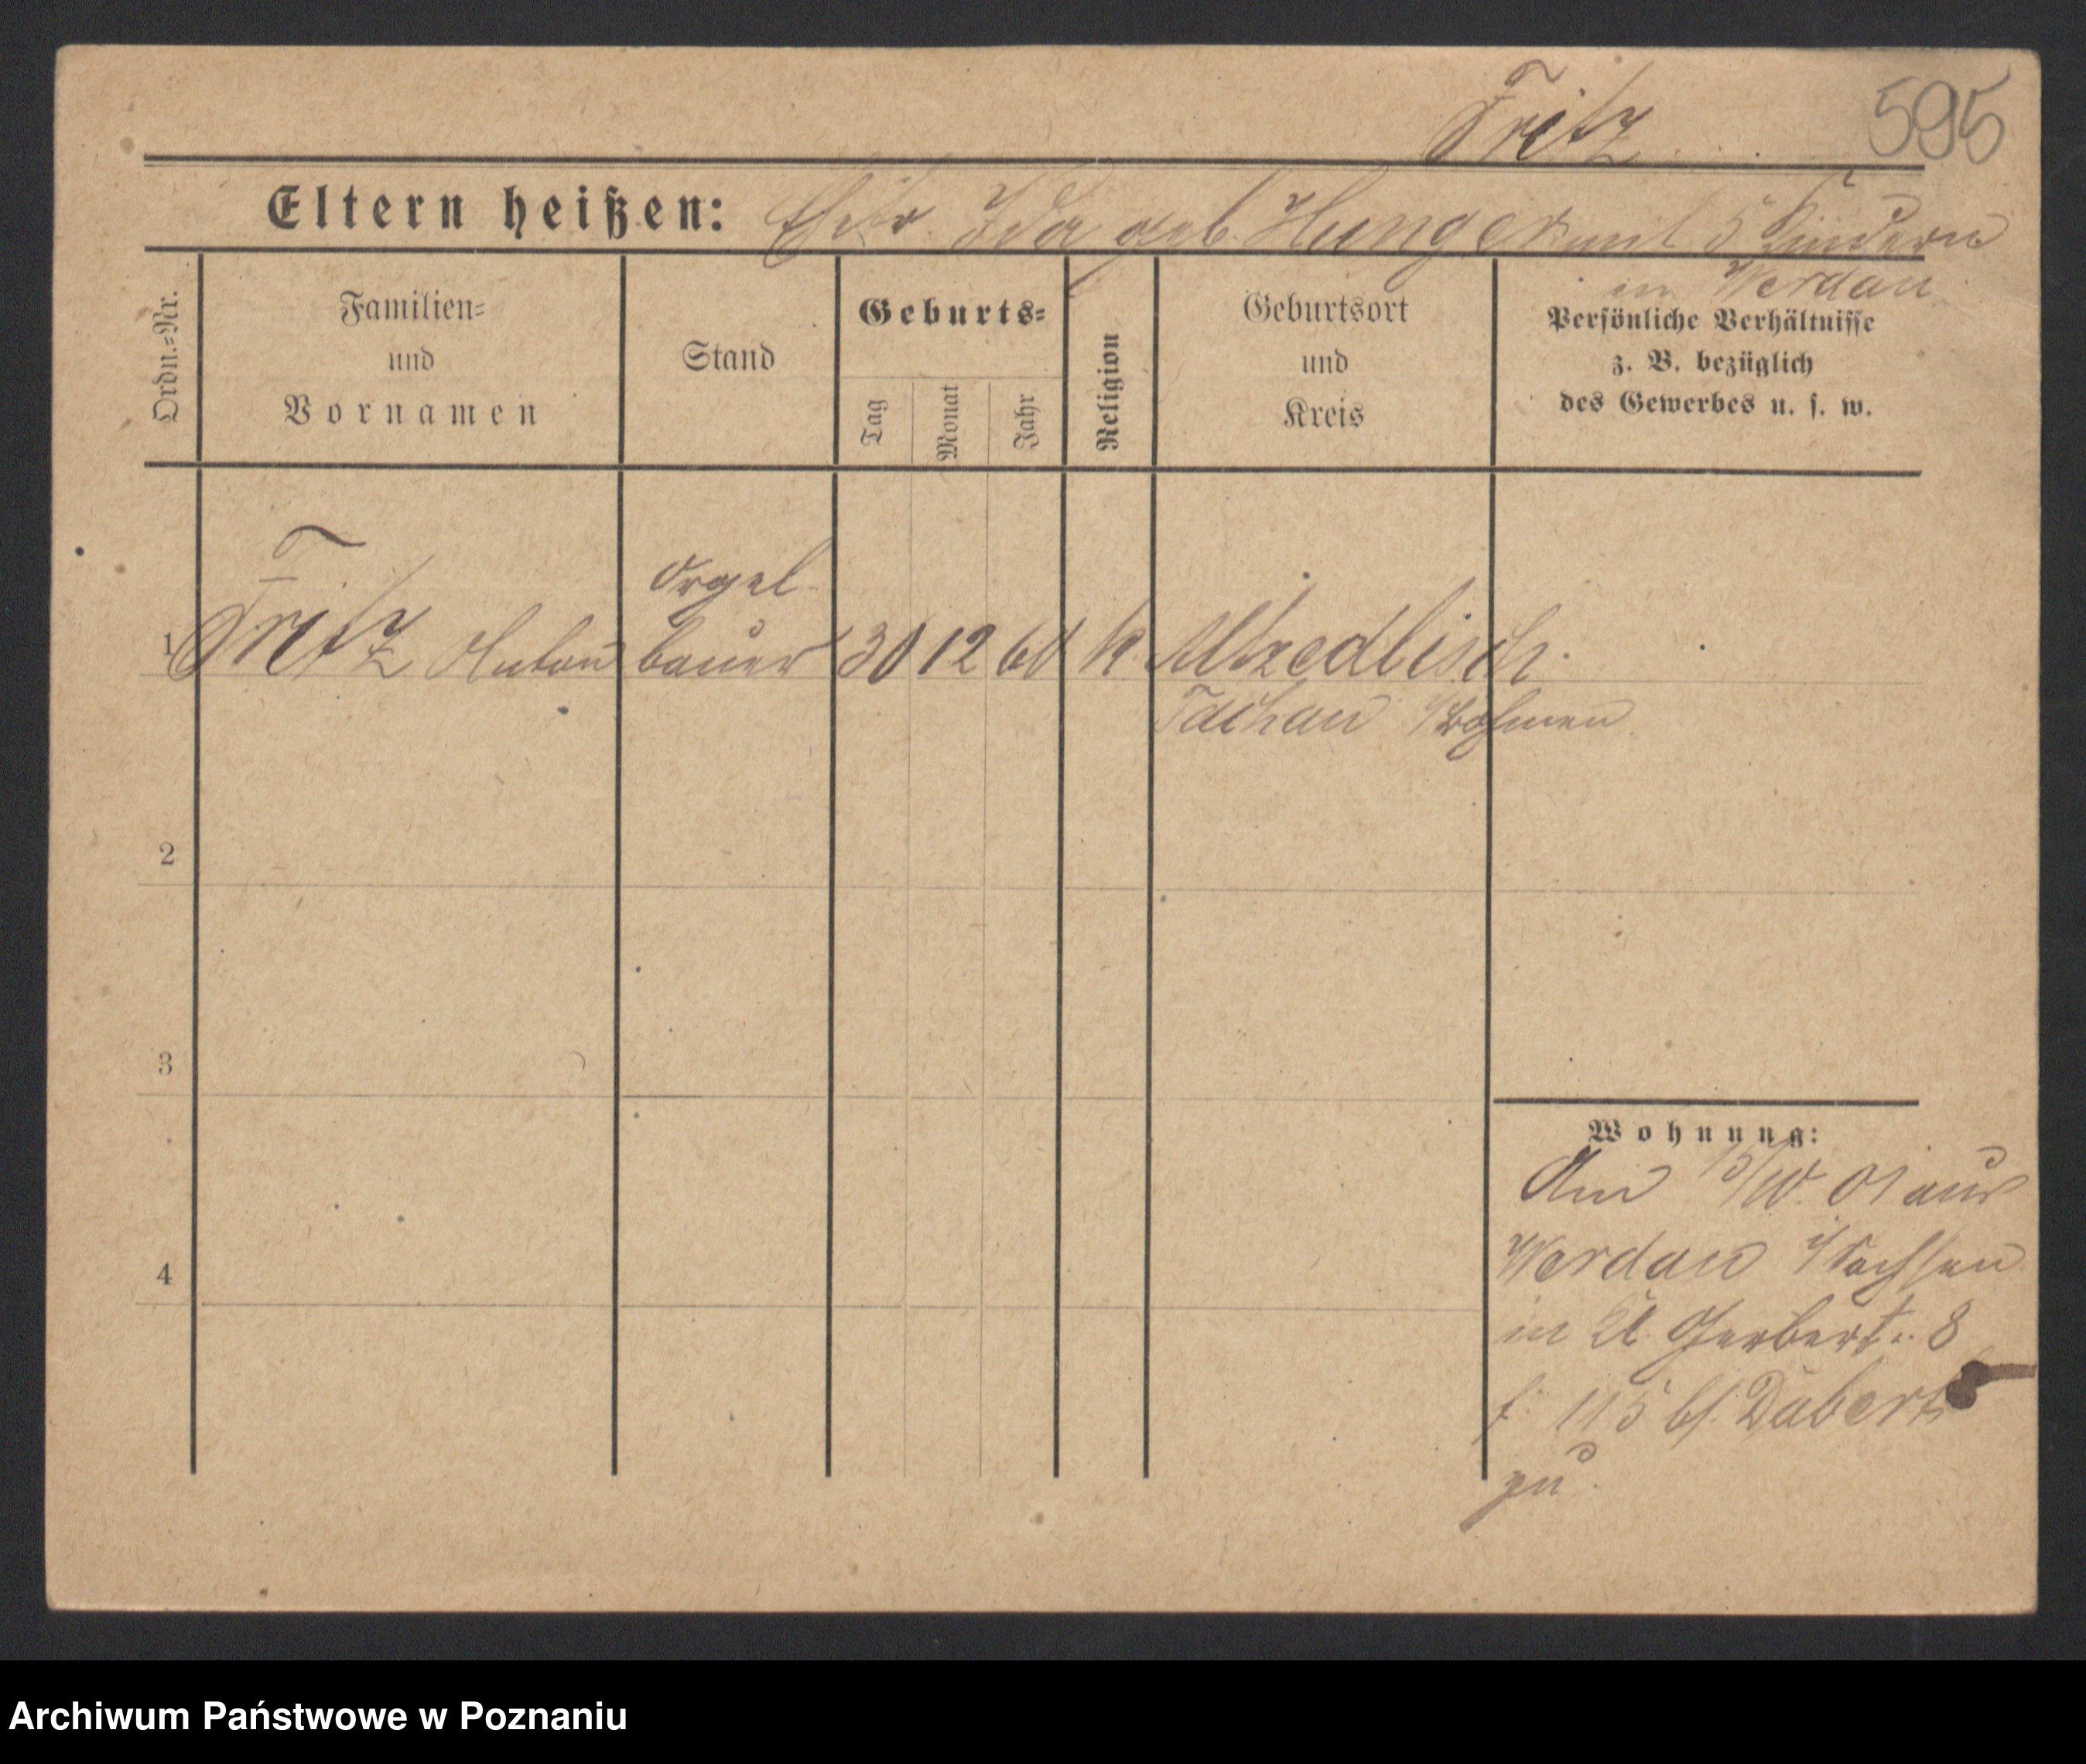 Fritz
595
Eltern heißen: Ehefr. Ida geb. Hunger mit 5 Kindern
in Werdau
Ordn.-Nr.
Familien-
und
Vornamen
Stand
Geburts-
Tag
Monat
Jahr
Religion
Geburtsort
und
Kreis
Persönliche Verhältnisse
z. B. bezüglich
des Gewerbes u. s. w.
Orgel
1 Fritz Anton bauer 30 12 60 k. Altzedlisch
Tachau i/Böhmen
2
3
4
Wohnung:
Am 15/10 01 aus
Werdau i/Sachsen
in Kl. Gerberst. 8
b/. Dabert
zu.
Archiwum Państwowe w Poznaniu